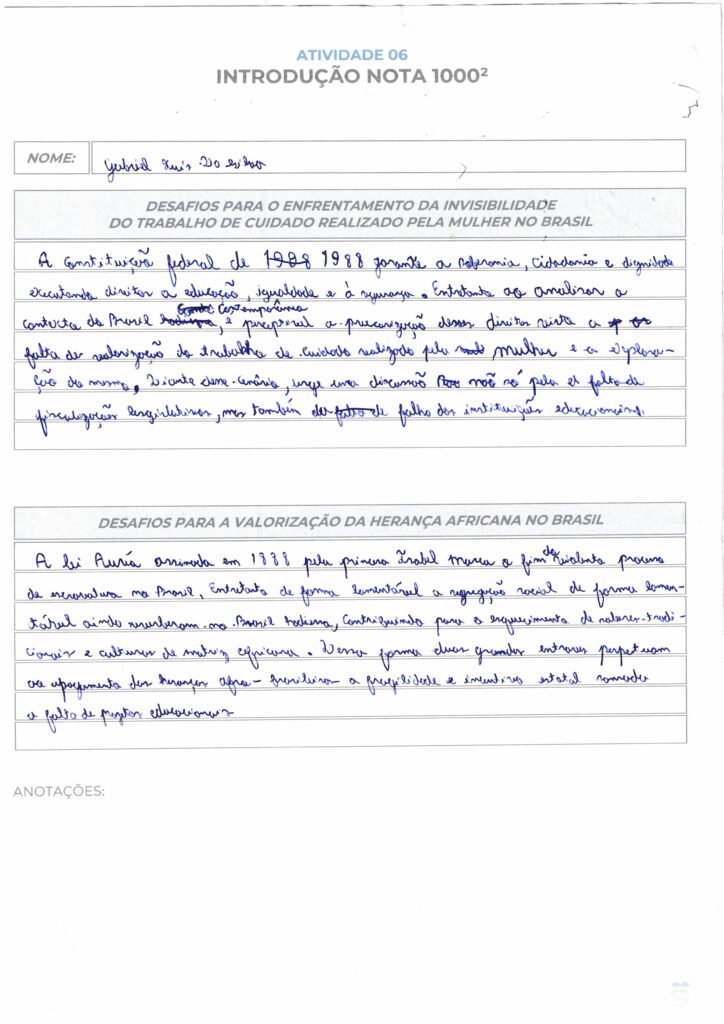 ATIVIDADE 06
INTRODUÇÃO NOTA 1000²
NOME: Gabriel Luis Da Silva
DESAFIOS PARA O ENFRENTAMENTO DA INVISIBILIDADE
DO TRABALHO DE CUIDADO REALIZADO PELA MULHER NO BRASIL
A Constituição federal de 1988 1988 garante a soberania, cidadania e dignidade
executando direitos a educação, igualdade e à segurança. Entretanto ao analisar o
contexto do Brasil Contemporâneo, é perceptível a precarização desses direitos vista a
falta de valorização do trabalho de cuidado realizado pela mulher e a explora-
ção da mesma. Diante desse cenário, urge uma discussão não só pela falta de
fiscalizações legislativas, mas também falha das instituições educacionais.
DESAFIOS PARA A VALORIZAÇÃO DA HERANÇA AFRICANA NO BRASIL
A lei Auréa assinada em 1888 pela princesa Isabel marca o fim do violento processo
de escravatura no Brasil. Entretanto de forma lamentável a segregação social de forma lamen-
tável ainda reverberam no Brasil hodierno, Contribuindo para o esquecimento de valores tradi-
cionais e culturas de matriz africana. Dessa forma duas grandes entraves perpetuam
o apagamento das heranças afro-brasileiras a fragilidade e incentivo estatal somado
a falta de projetos educacionais
ANOTAÇÕES: